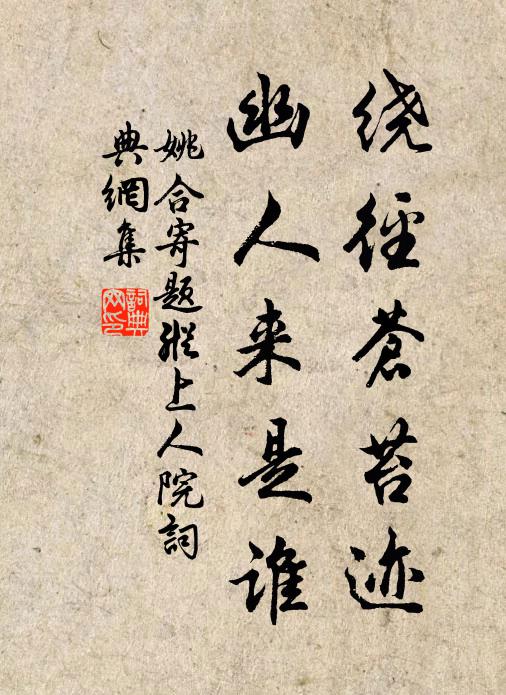 绕径苍苔迹
幽人来是谁
姚合寄题纵上人院詞
典網集
詞典網印